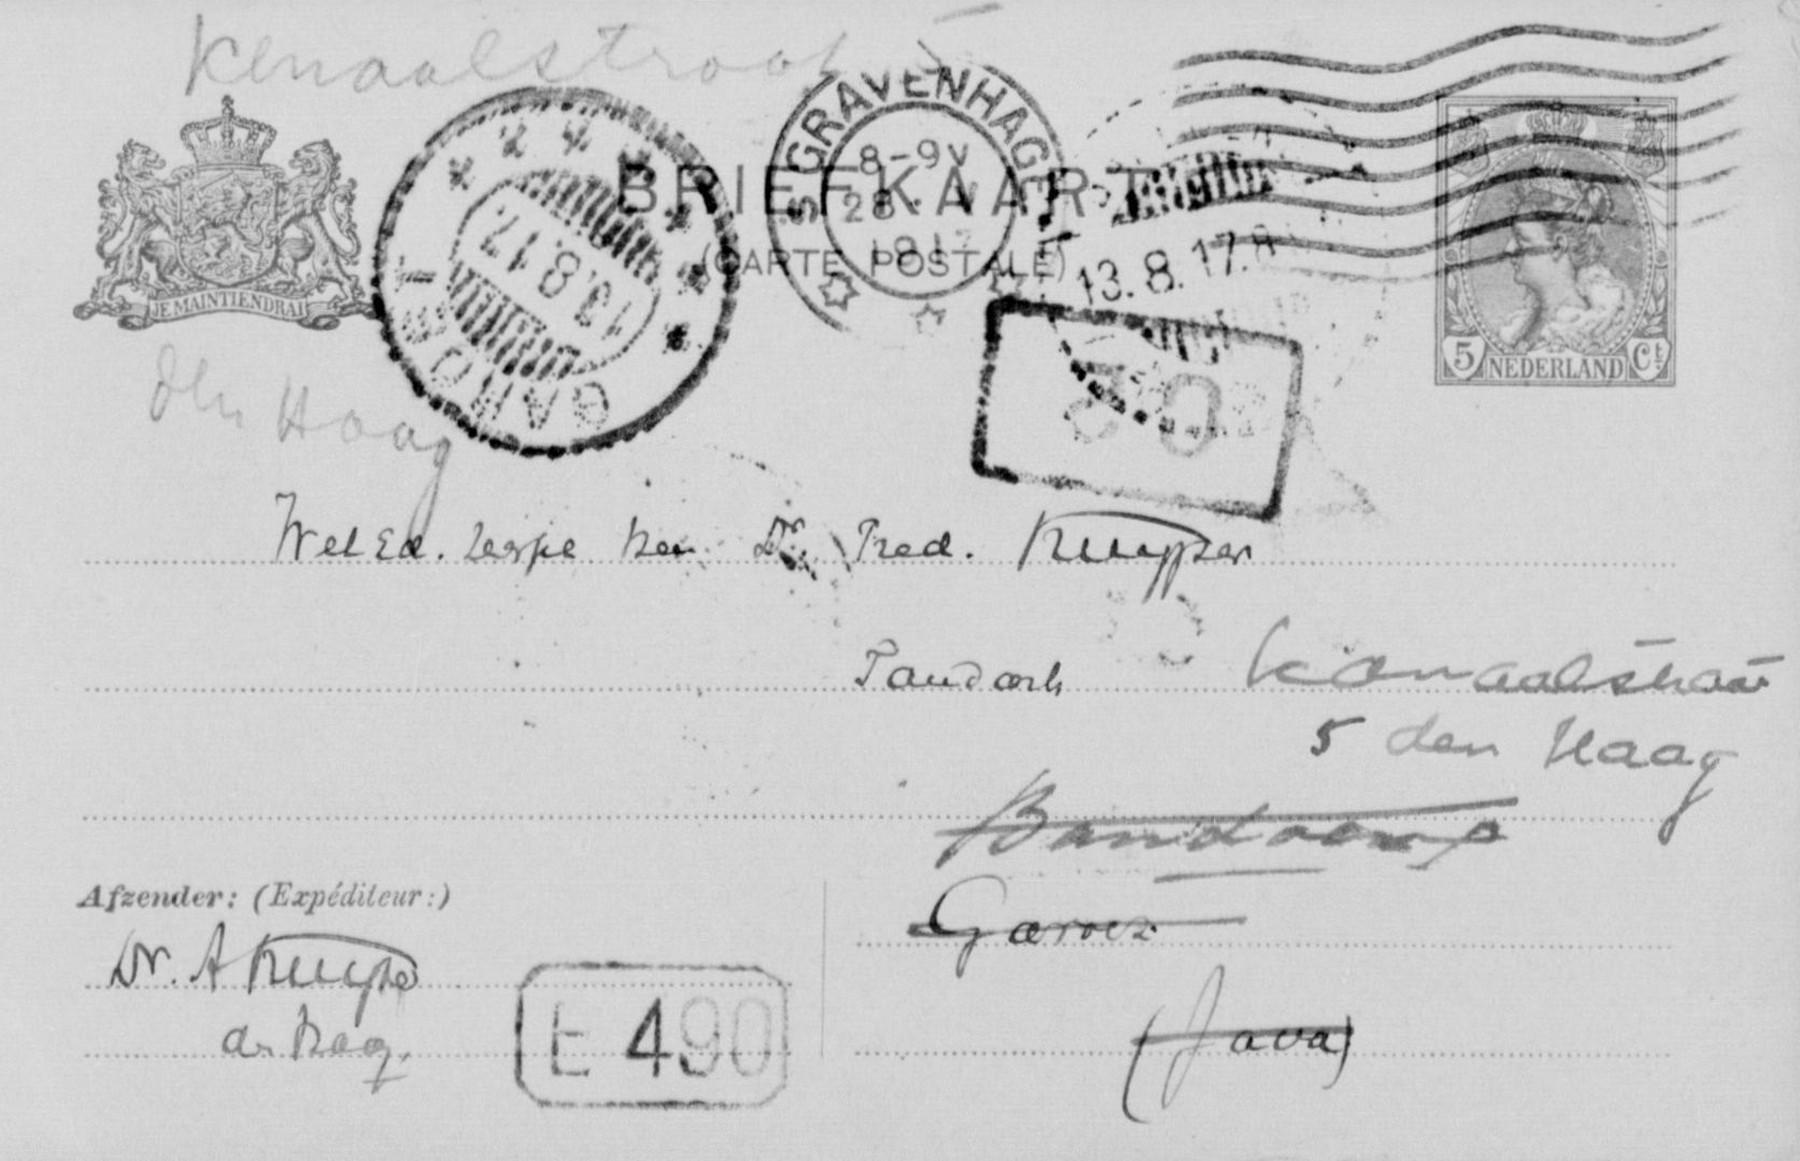 Kanaalstraat
'S GRAVENHAGE
8-9V
28
BRIEFKAART
(CARTE POSTALE)
13.8.17
GAROET
13.8.17.
JE MAINTIENDRAI
5 NEDERLAND Ct
den Haag
80
WelEd. Heer Dr. Fred. Kuyper
Tandarts
Kanaalstraat
5 den Haag
Bandoeng
Afzender: (Expéditeur:)
Garoet
Dr. A Kuyper
d. Haag.
(Java)
E 490